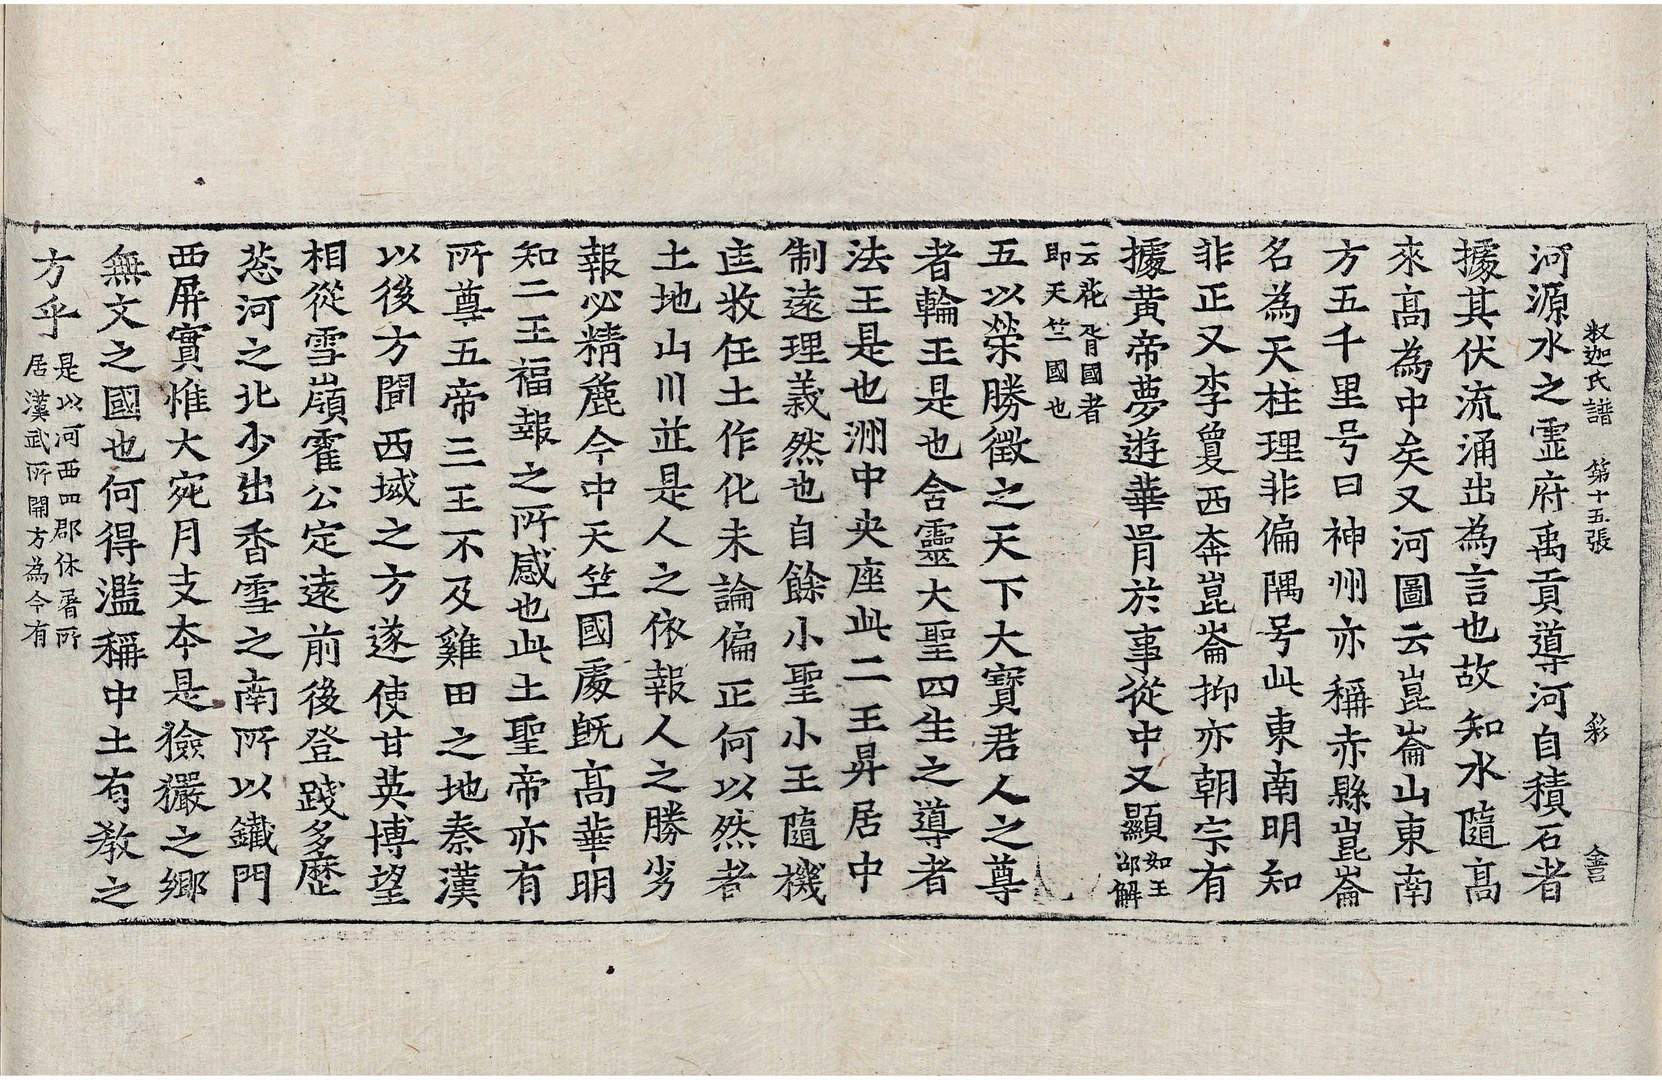 釈迦氏譜 第十五張 彩 金言
河源水之霊府禹貢導河自積石者
據其伏流涌出為言也故知水隨高
來高為中矣又河圖云崑崙山東南
方五千里号曰神州亦稱赤縣崑崙
名為天柱理非偏隅号此東南明知
非正又李夐西奔崑崙抑亦朝宗有
據黃帝夢遊華胥於事從中又顯如王邵解
云花胥國者即天竺國也
五以榮勝徵之天下大寶君人之尊
者輪王是也含靈大聖四生之導者
法王是也洲中央座此二王昇居中
制遠理義然也自餘小聖小王隨機
疌牧任土作化未論偏正何以然者
土地山川並是人之依報人之勝劣
報必精麁今中天竺國處旣高華明
知二王福報之所感也此土聖帝亦有
所尊五帝三王不及雞田之地秦漢
以後方聞西域之方遂使甘英博望
相從雪嶺霍公定遠前後登踐多歷
葱河之北少出香雪之南所以鐵門
西屏實惟大宛月支本是獫玁之鄉
無文之國也何得濫稱中土有教之
方乎是以河西四郡休屠所居漢武所開方為今有